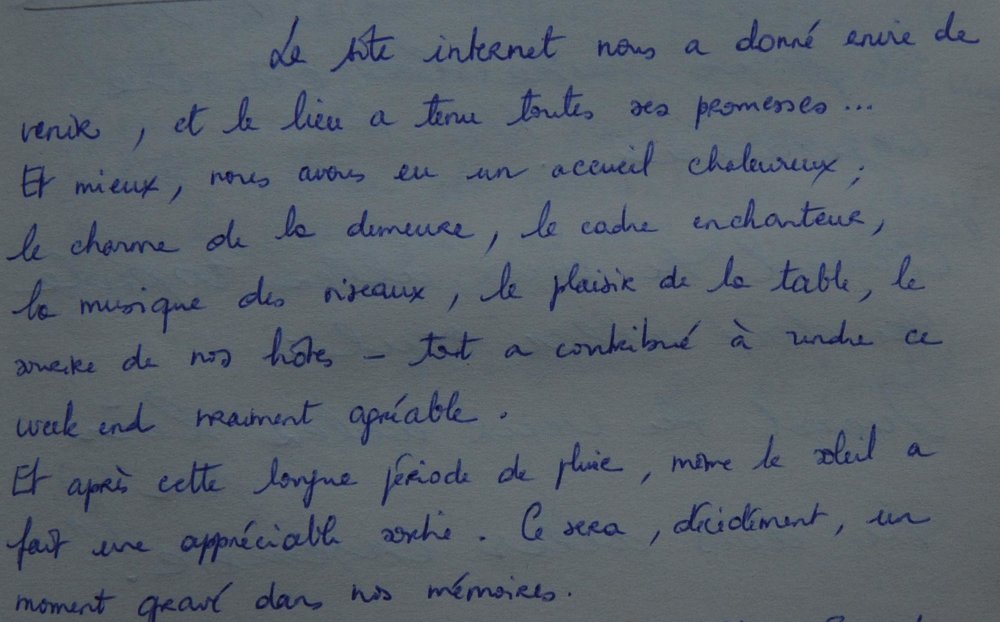 Le site internet nous a donné envie de
venir, et le lieu a tenu toutes ses promesses...
Et mieux, nous avons eu un accueil chaleureux ;
le charme de la demeure, le cadre enchanteur,
la musique des oiseaux, le plaisir de la table, le
sourire de nos hôtes - tout a contribué à rendre ce
week end vraiment agréable.
Et après cette longue période de pluie, même le soleil a
fait une appréciable sortie. Ce sera, décidément, un
moment gravé dans nos mémoires.